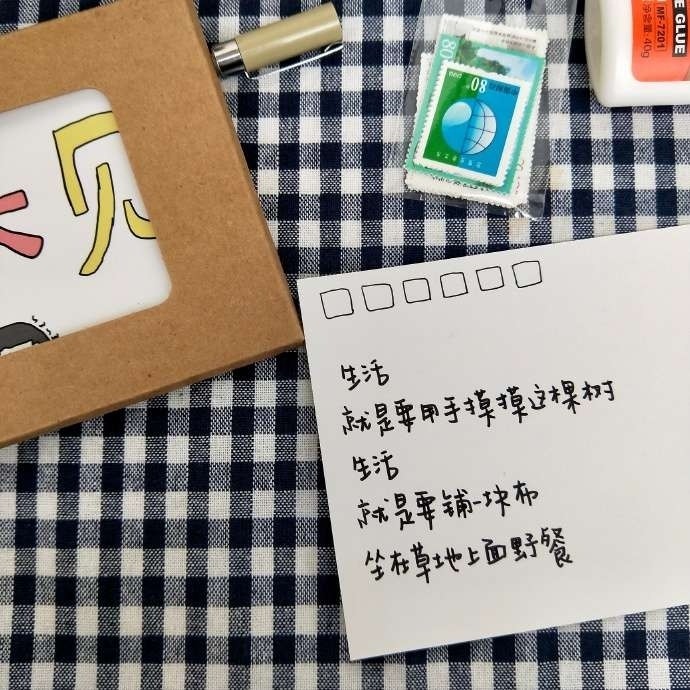 见
80
08
E GLUE
MF-7201
净含量:40g
生活
就是要用手摸摸这棵树
生活
就是要铺一块布
坐在草地上面野餐